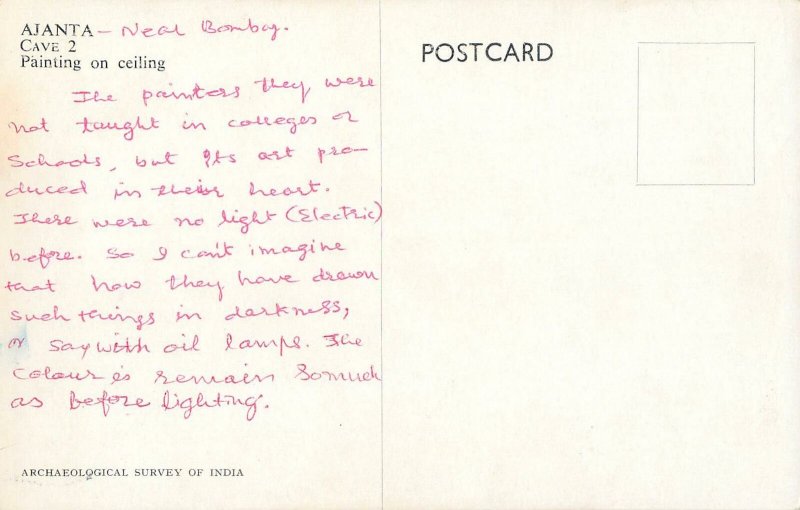 AJANTA - Near Bombay.
CAVE 2
Painting on ceiling
The painters they were
not taught in colleges or
Schools, but its art pro-
duced in their heart.
There were no light (Electric)
before. So I can't imagine
that how they have drawn
such things in darkness,
or say with oil lamps. The
Colour is remain Somuch
as before lighting.
ARCHAEOLOGICAL SURVEY OF INDIA
POSTCARD